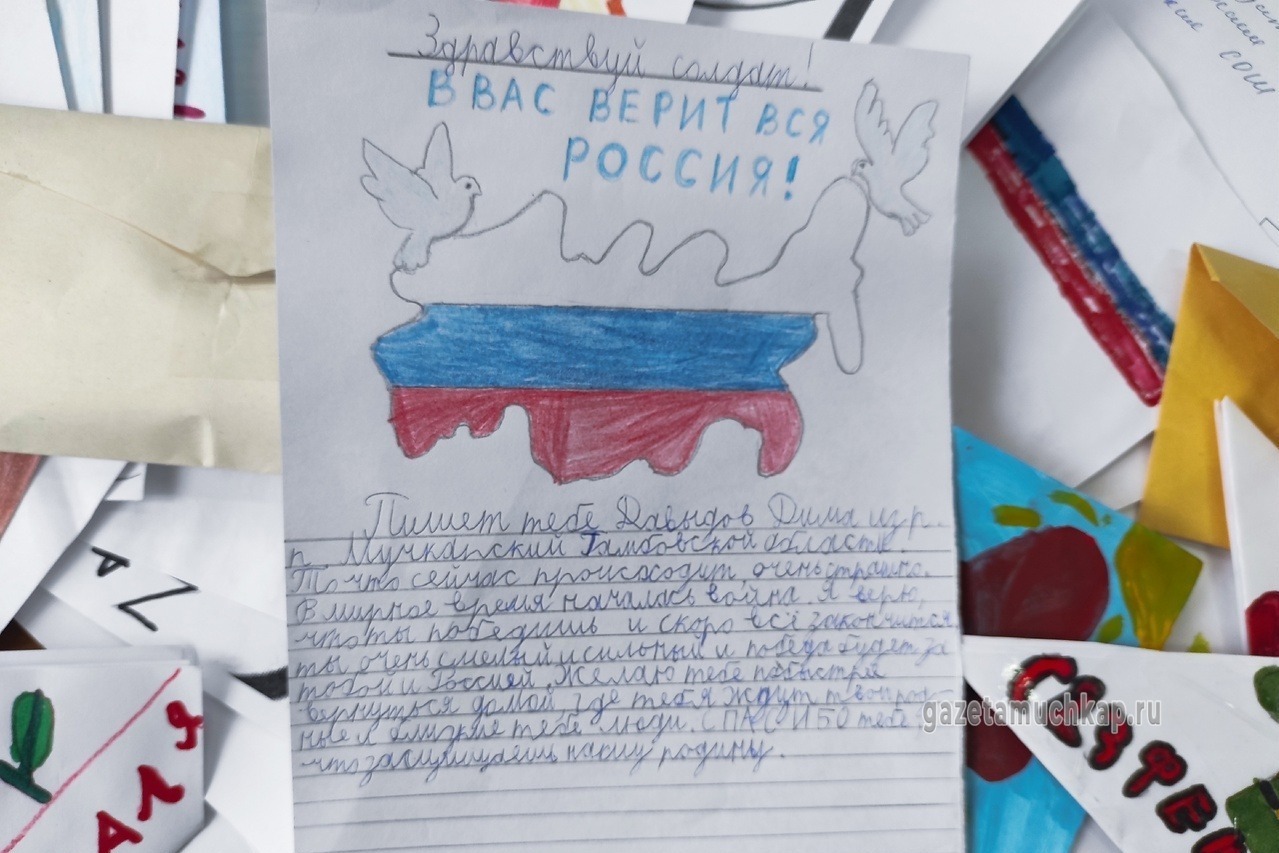 Здравствуй солдат!
В ВАС ВЕРИТ ВСЯ
РОССИЯ!
Пишет тебе Давыдов Дима из р.
п. Мучкапский Тамбовской области.
То что сейчас происходит, очень страшно.
В мирное время началась война. Я верю,
что ты победишь и скоро всё закончится,
ты очень смелый и сильный и победа будет за
тобой и Россией, желаю тебе побыстрей
вернуться домой, где тебя ждут твои род-
ные и близкие тебе люди. СПАСИБО тебе
что защищаешь нашу родину.
gazetamuchkap.ru
СОШ
АЛЯ